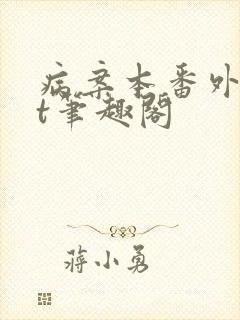 病案本番外
t笔趣阁
蒋小勇